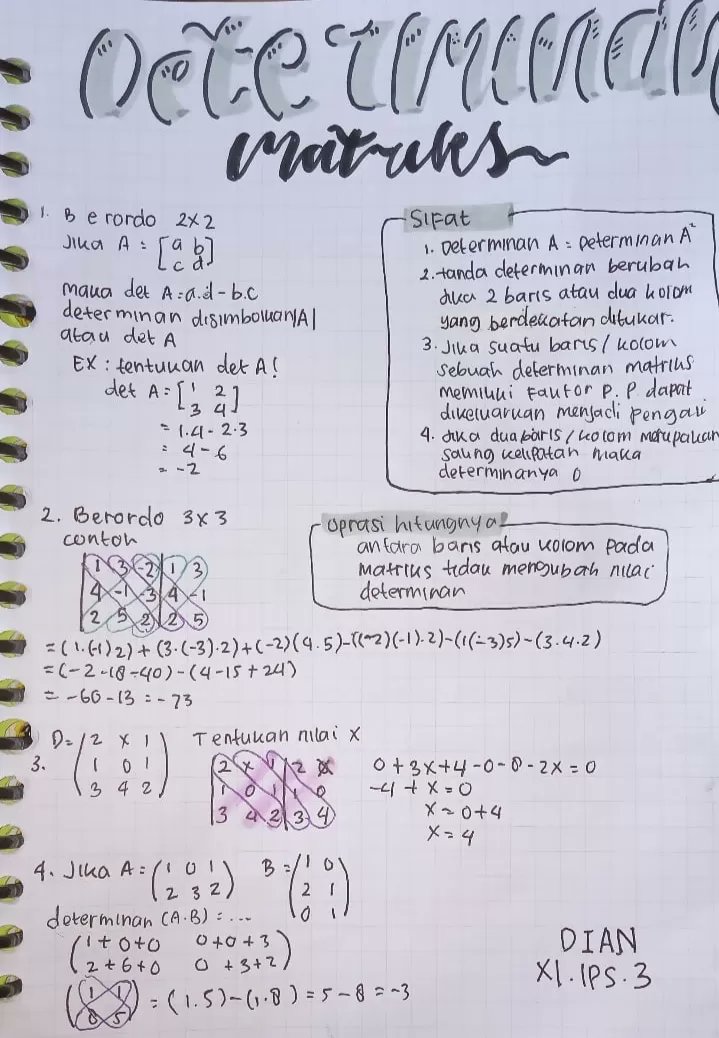 Determinan
matriks
1. Berordo 2x2
Jika A = [a b
c d]
maka det A = a.d - b.c
determinan disimbolkan |A|
atau det A
EX : tentukan det A!
det A = [1 2
3 4]
= 1.4 - 2.3
= 4 - 6
= -2
Sifat
1. Determinan A = Determinan A
2. tanda determinan berubah
jika 2 baris atau dua kolom
yang berdekatan ditukar.
3. Jika suatu baris / kolom
sebuah determinan matriks
memiliki faktor P. P dapat
dikeluarkan menjadi pengali
4. Jika dua baris / kolom merupakan
saling kelipatan maka
determinanya 0
2. Berordo 3x3
contoh
1 3 -2 1 3
4 -1 -3 4 -1
2 5 2 2 5
= (1.(-1)2) + (3.(-3).2) + (-2)(4.5) - ((-2)(-1).2) - (1(-3)5) - (3.4.2)
= (-2 - 18 - 40) - (4 - 15 + 24)
= -60 - 13 = -73
Oprasi hitungnya!
antara baris atau kolom pada
matriks tidak mengubah nilai
determinan
3. D = (2 x 1
1 0 1
3 4 2)
Tentukan nilai x
2 x 1 2 x
1 0 1 1 0
3 4 2 3 4
0 + 3x + 4 - 0 - 8 - 2x = 0
-4 + x = 0
x = 0 + 4
x = 4
4. Jika A = (1 0 1
2 3 2)
B = (1 0
2 1
0 1)
determinan (A.B) = ...
(1 + 0 + 0 0 + 0 + 3
2 + 6 + 0 0 + 3 + 2)
(1 1
8 5) = (1.5) - (1.8) = 5 - 8 = -3
DIAN
XI.IPS.3